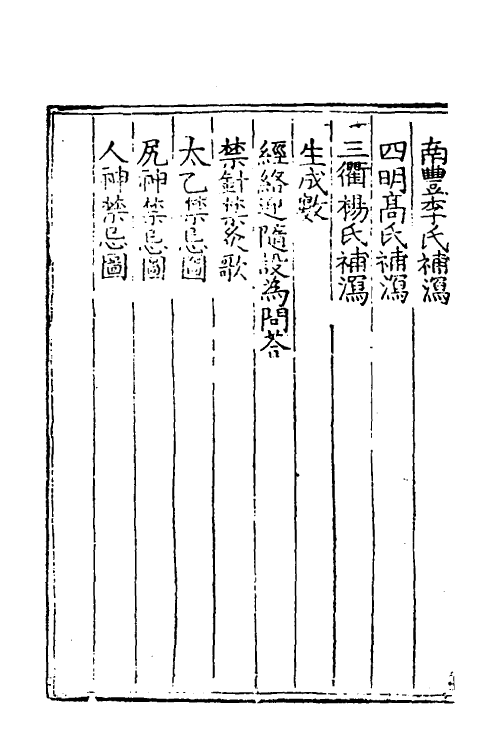 南豐李氏補瀉
四明高氏補瀉
三衢楊氏補瀉
生成數
經絡迎隨設為問荅
禁針禁灸歌
太乙禁忌圖
尻神禁忌圖
人神禁忌圖